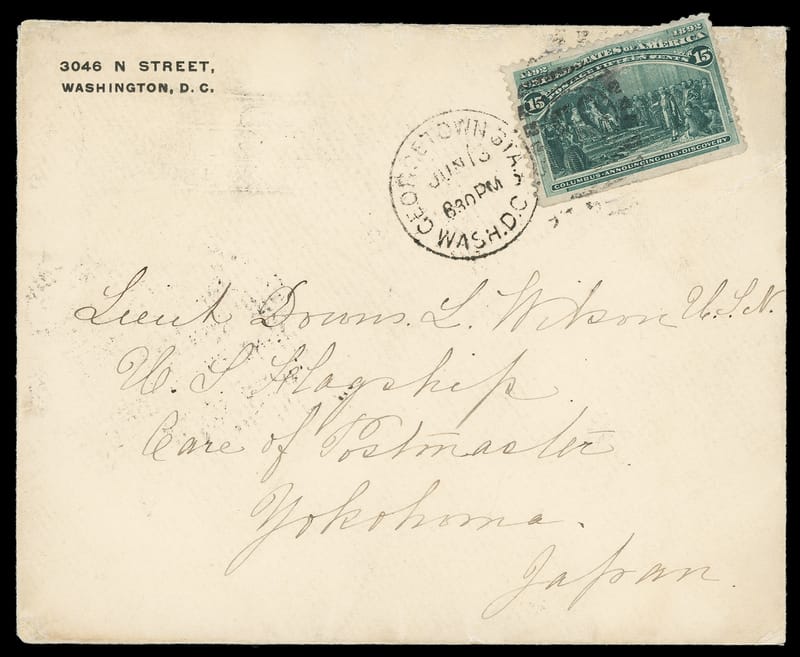 3046 N STREET,
WASHINGTON, D. C.
1492 1892
UNITED STATES OF AMERICA
POSTAGE FIFTEEN CENTS
15 15
COLUMBUS ANNOUNCING HIS DISCOVERY
GEORGETOWN STA.
JUN 13
630 PM
WASH. D.C.
Lieut Downs. L. Wilson U.S.N.
U. S Flagship
Care of Postmaster
Yokohoma.
Japan.